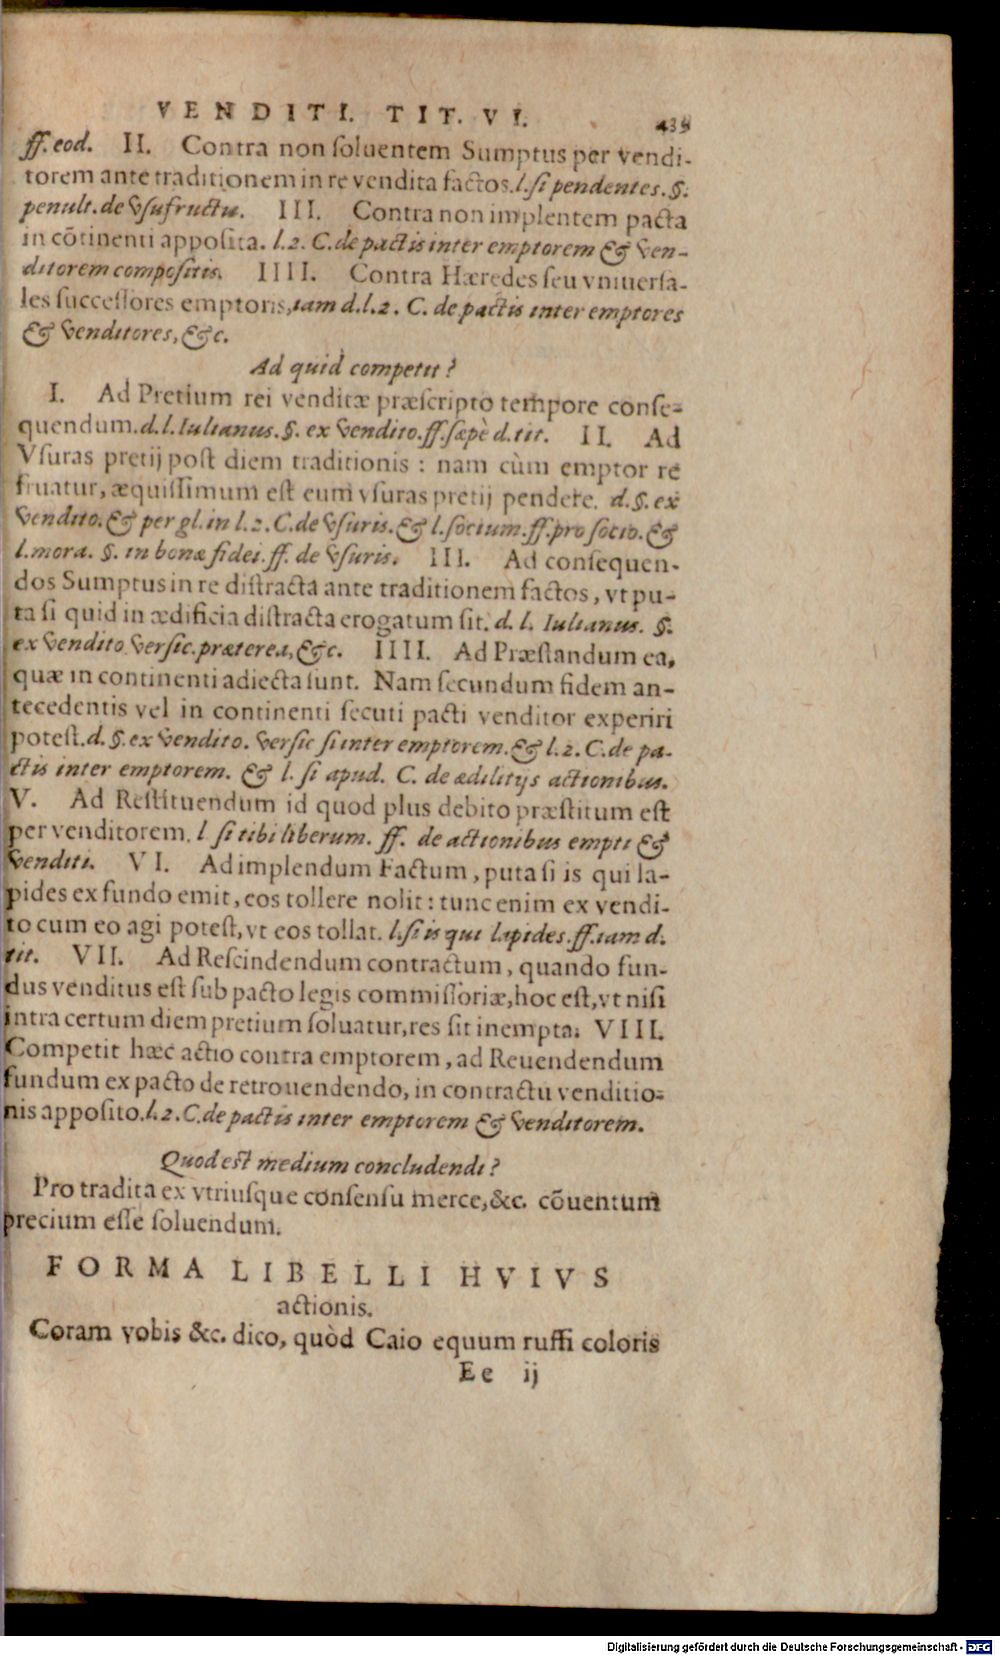 VENDITI. TIT. VI. 435
ff. eod. II. Contra non soluentem Sumptus per vendi-
torem ante traditionem in re vendita factos. l. si pendentes. §.
penult. de vsufructu. III. Contra non implentem pacta
in cōtinenti apposita. l. 2. C. de pactis inter emptorem & ven-
ditorem compositis. IIII. Contra Hæredes seu vniuersa-
les successores emptoris, iam d. l. 2. C. de pactis inter emptores
& venditores, &c.
Ad quid competit?
I. Ad Pretium rei venditæ præscripto tempore conse-
quendum. d. l. Iulianus. §. ex vendito. ff. sæpè d. tit. II. Ad
Vsuras pretij post diem traditionis : nam cùm emptor re
fruatur, æquissimum est eum vsuras pretij pendere. d. §. ex
vendito. & per gl. in l. 2. C. de vsuris. & l. socium. ff. pro socio. &
l. mora. §. in bonæ fidei. ff. de vsuris. III. Ad consequen-
dos Sumptus in re distracta ante traditionem factos, vt pu-
ta si quid in ædificia distracta erogatum sit. d. l. Iulianus. §.
ex vendito versic. præterea, &c. IIII. Ad Præstandum ea,
quæ in continenti adiecta sunt. Nam secundum fidem an-
tecedentis vel in continenti secuti pacti venditor experiri
potest. d. §. ex vendito. versic si inter emptorem. & l. 2. C. de pa-
ctis inter emptorem. & l. si apud. C. de ædilitijs actionibus.
V. Ad Restituendum id quod plus debito præstitum est
per venditorem. l si tibi liberum. ff. de actionibus empti &
venditi. VI. Ad implendum Factum, puta si is qui la-
pides ex fundo emit, eos tollere nolit : tunc enim ex vendi-
to cum eo agi potest, vt eos tollat. l. si is qui lapides. ff. iam d.
tit. VII. Ad Rescindendum contractum, quando fun-
dus venditus est sub pacto legis commissoriæ, hoc est, vt nisi
intra certum diem pretium soluatur, res sit inempta. VIII.
Competit hæc actio contra emptorem, ad Reuendendum
fundum ex pacto de retrouendendo, in contractu venditio-
nis apposito. l. 2. C. de pactis inter emptorem & venditorem.
Quod est medium concludendi?
Pro tradita ex vtriusque consensu merce, &c. cōuentum
precium esse soluendum.
FORMA LIBELLI HVIVS
actionis.
Coram vobis &c. dico, quòd Caio equum ruffi coloris
Ee ij
Digitalisierung gefördert durch die Deutsche Forschungsgemeinschaft - DFG